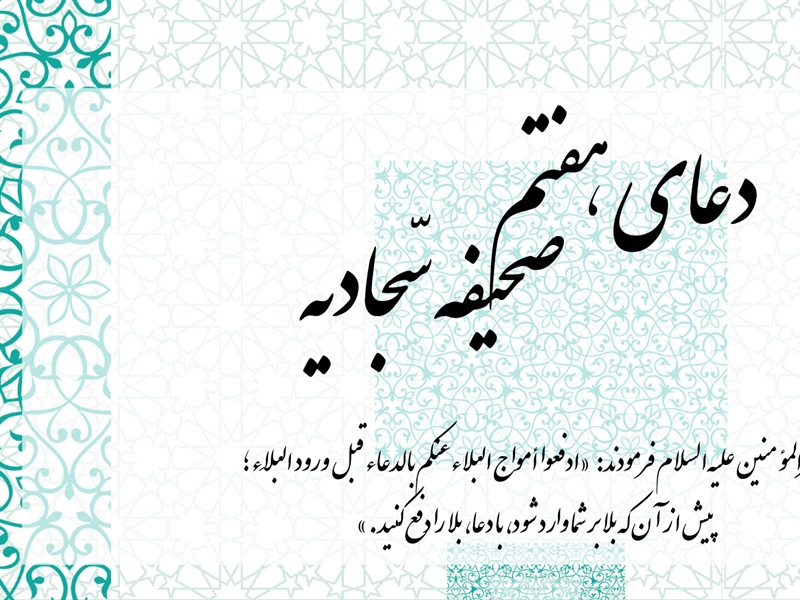 دعای هفتم
صحیفه سجّادیه
المؤمنین علیه السلام فرمودند: «ادفعوا أمواج البلاء عنکم بالدعاء قبل ورود البلاء؛
پیش از آن که بلا بر شما وارد شود، با دعا، بلا را دفع کنید.»